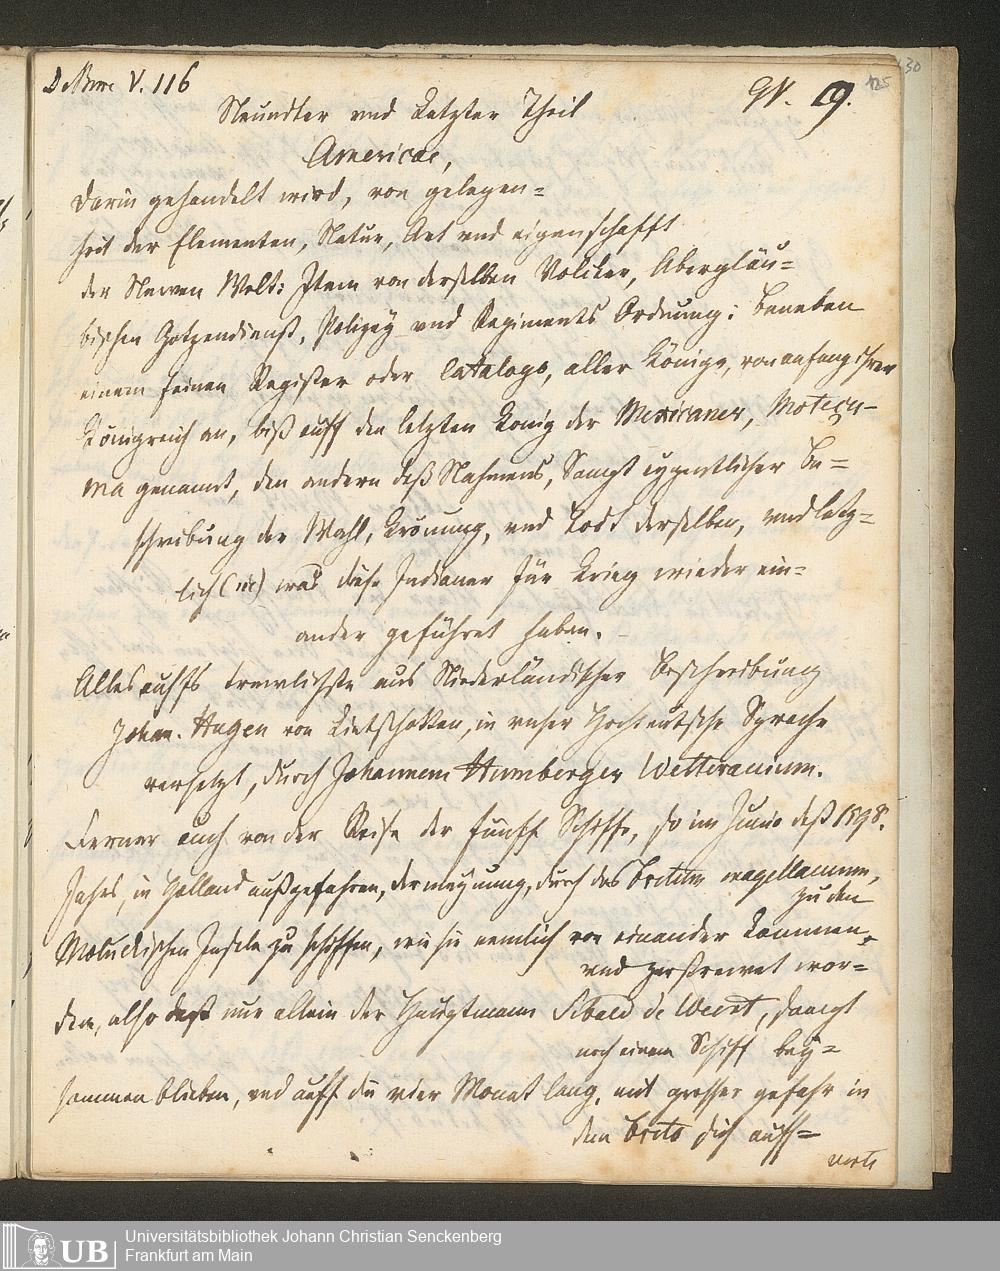 DeBrye V. 116
GV. 19.
125
30
Neundter vnd Letzter Theil
Americae,
Darin gehandelt wird, von gelegen=
heit der Elementen, Natur, Art vnd eigenschafft
der Newen Welt: Item von derselben Völcker, Abergläu=
bischen Götzendienst, Polizey vnd Regiments Ordnung: beneben
einem feinen Register oder Catalogo, aller Könige, von anfang ihres
Königreich an, biß auff den letzten König der Mexicaner, Motecu=
ma genannt, den andern deß Nahmens, Sampt eygentlicher be=
schreibung der Wahl, Krönung, vnd Todt derselben, vnd letz=
lich (sic) was diese Indianer für Krieg wieder ein=
ander geführet haben.
Alles auffs trewlichste aus Niederländischer beschreibung
Johan. Hugen von Lintschotten, in vnser Hochteutsche Sprache
versetzt, durch Johannem Humberger Wetteranium.
Ferner auch von der Reise der fünff Schiffe, so im Junio deß 1598.
Jahrs, in Holland außgefahren, der meynung, durch das Fretum magellanum,
zu den
Moluckischen Inseln zu schiffen, wie sie nemlich von einander kommen,
vnd zerstrewet wor=
den, also daß nur allein der Hauptmann Sibald de Weert, sampt
noch einem Schiff bey=
sammen blieben, vnd auff die vier Monat lang, mit grosser gefahr in
dem Freto sich auff=
verte
Universitätsbibliothek Johann Christian Senckenberg
Frankfurt am Main
UB